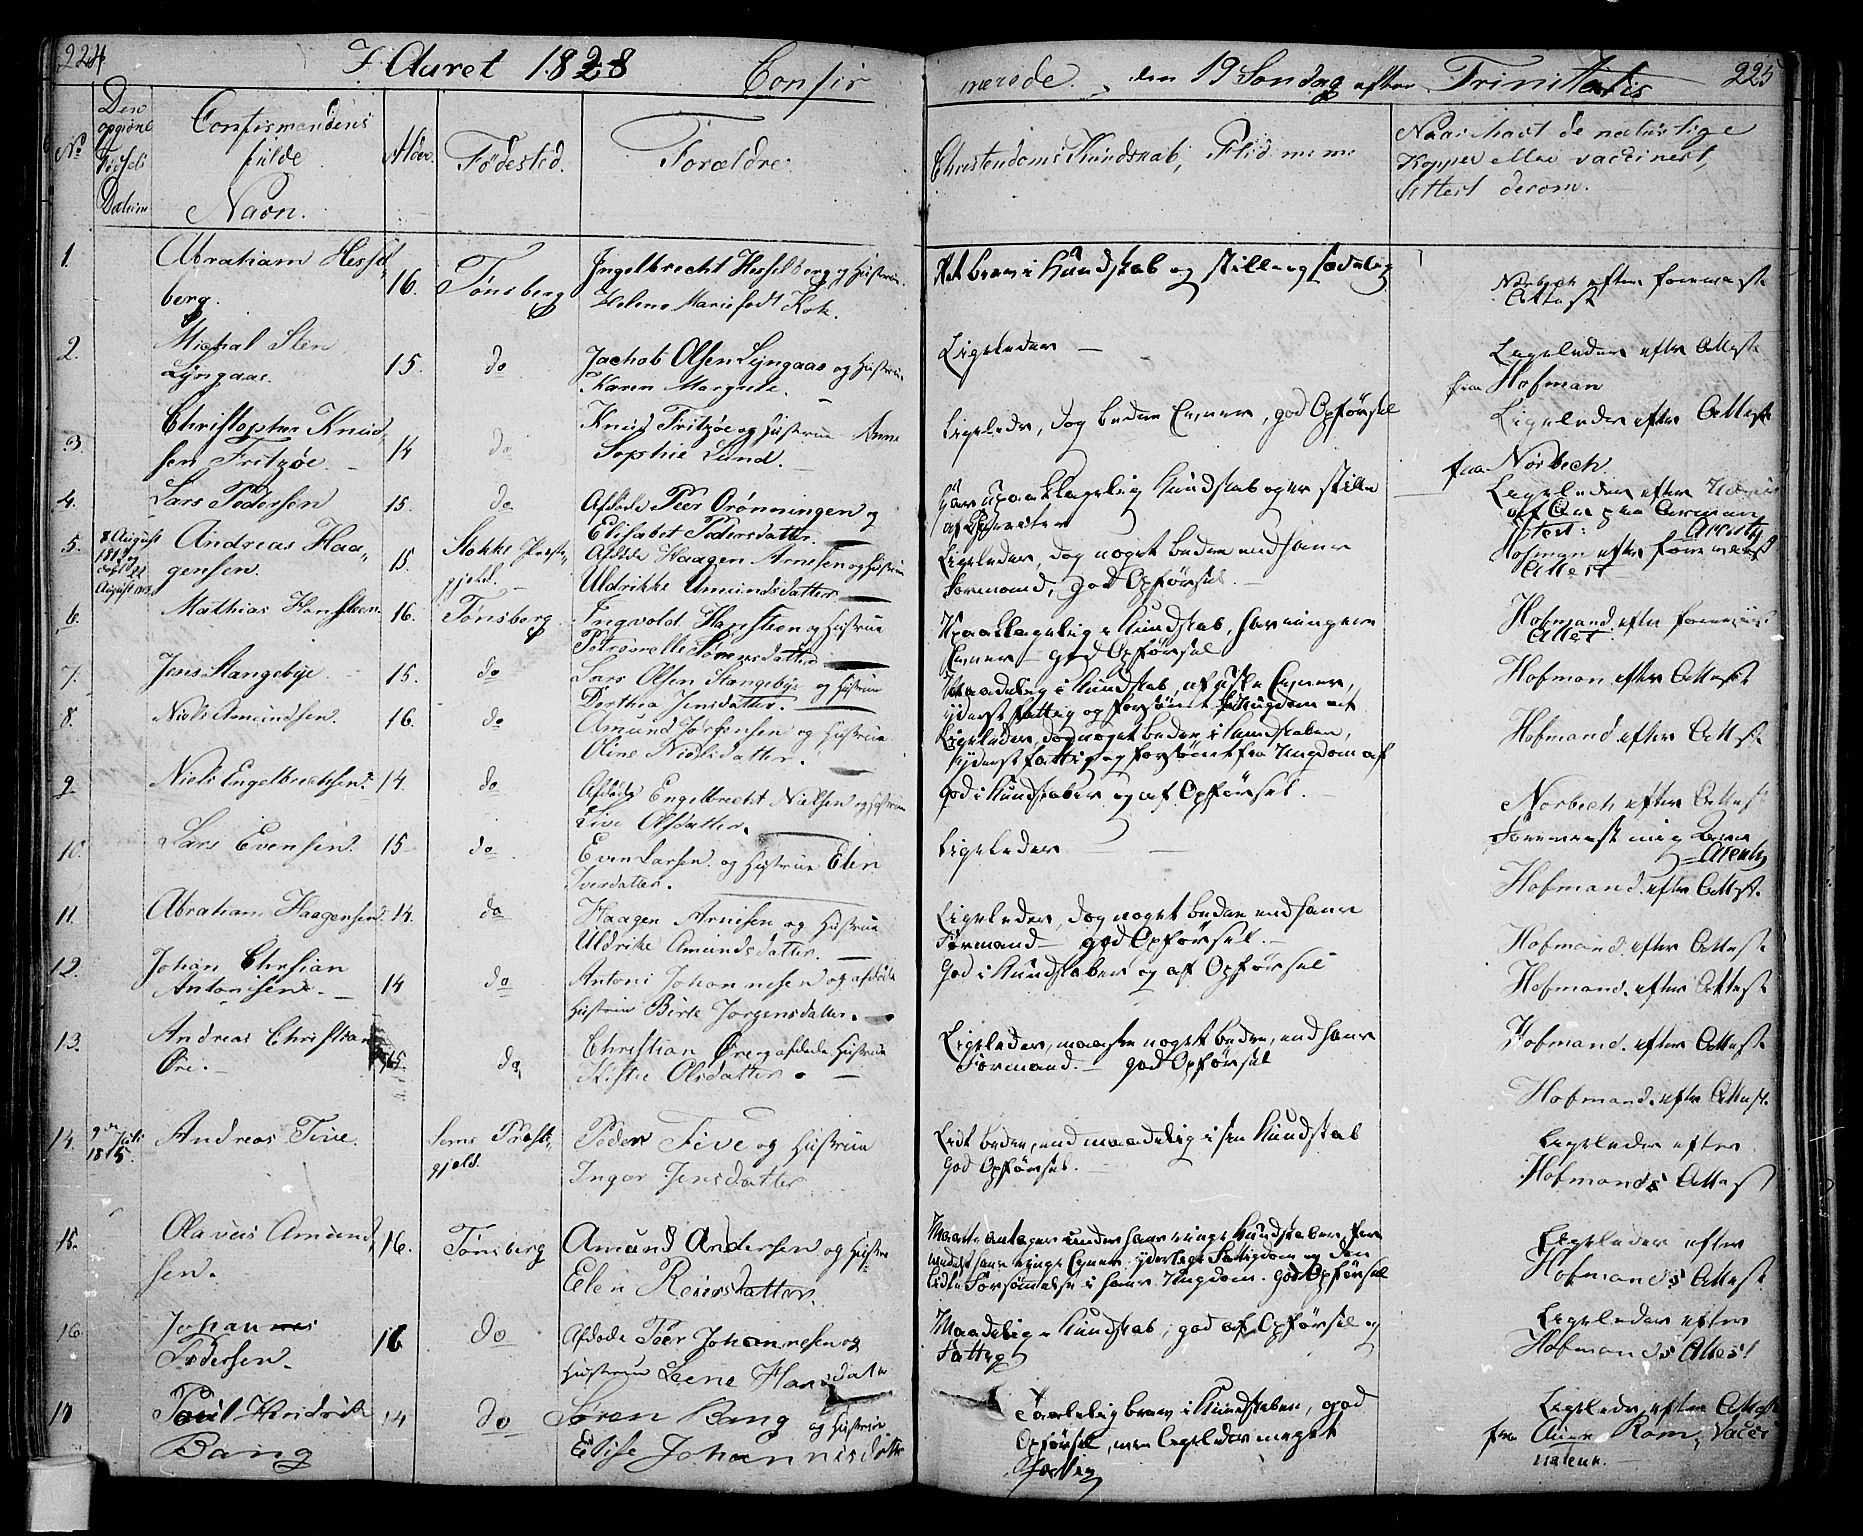 224
I Aaret 1828
Confir
merede. den 19 Søndag efter Trinitatis
225
No
Den opgivne Fødsels Datum
Confirmandens fulde Navn.
Alder
Fødested.
Forældre.
Christendoms Kundskab, Flid m: m:
Naar havt de naturlige
Kopper eller vaccineret,
Attest derom.
1. Abraham Hessel
berg.
16. Tønsberg
Ingelbrecht Hesselberg og Hustrue
Helene Marie født Kok.
Ret brav i Kundskab og stille og sædelig
Norbech efter foreviiste
Attest
2. Michal Sten
Lyngaas.
15. do
Jachob Olsen Lyngaas og Hustrue
Karen Margrete.
Ligeleder —
Ligeledes efter Attest
fra Hofman
3. Christopher Knud
sen Fritzøe.
14 do
Knud Fritzøe og Hustrue Anne
Sophie Lund.
Ligeleder, dog bedre Evner, god Opførsel
Ligeledes efter Attest
fra Norbech
4. Lars Pedersen
15. do
Afdøde Peer Orønningen og
Elisabet Pedersdatter.
Har upaaklagelig Kundskab og er stille
af
Ligeledes efter
Arentz
5. 8 August
1813
August 1813
Andreas Haa
gensen.
15. Stokke Præste
gjeld.
Afdøde Haagen Arnesen og Hustrue
Uldrikke Amundsdatter.
Ligeleder, dog noget bedre end hans
Formand, god Opførsel.
Hofman efter foreviist
Attest
6. Mathias Hansteen
16. Tønsberg.
Ingvold Hansteen og Hustrue
Petronelle Sørensdatter
Upaaklagelig i Kundskab, har ringere
Evner — god Opførsel
Hofmand efter foreviist
Attest
7. Jens Slangebye.
15. do
Lars Olsen Slangebye og Hustrue
Dorthea Jensdatter.
Maadelig i Kundskab, af Evner,
yderst fattig og forsømt
Hofman efter Attest
8. Niels Amundsen.
16. do
Amund Jørgensen og Hustrue
Oline Nielsdatter.
Ligeleder, dog noget bedre i Kundskaber,
yderst fattig og forsømt fra Ungdom af
Hofmand efter Attest
9. Niels Engelbrechtsen
14. do
Afdøde Engelbrecht Nielsen og Hustrue
Live Olsdatter.
God i Kundskaber og af Opførsel.
Norbech efter Attest
10. Lars Evensen
15 do
Even Larsen og Hustrue Elen
Iversdatter.
Ligeleder
Foreviist mig
Arentz
Hofmand efter Attest.
11. Abraham Haagensen
14. do
Haagen Arnesen og Hustrue
Uldrike Amundsdatter.
Ligeleder, dog noget bedre end hans
Formand — god Opførsel.
Hofmand efter Attest
12. Johan Chrsian
Antonsen.
14 do
Antoni Johannesen og afdøde
Hustrue Birte Jørgensdatter.
God i Kundskaber og af Opførsel
Hofmand. efter Attest
13. Andreas Christian
Øre.
15. do
Christian Øre og afdøde Hustrue
Kistie Olsdatter.
Ligeleder, maaske noget bedre, end hans
Formand. — god Opførsel
Hofmand. efter Attest
Hofmand. efter Attest
14. 9de Juli
1815.
Andreas Five.
Sems Præste
gjeld.
Peder Five og Hustrue
Inger Jensdatter
Lidt bedre, end maadelig i sin Kundskab
God Opførsel.
Ligeledes efter
Hofmands Attest
15. Olaveus Amund
sen.
16. Tønsberg
Amund Andersen og Hustrue
Elen Reiersdatter.
hans ringe Kundskaber,
hans ringe Evner, yderlige Fattigdom og den
Forsømmelse i hans Ungdom. god Opførsel
Ligeledes efter
Hofmands Attest
16. Johannes
Pedersen.
16 do
Afdøde Peer Johannesen og
Hustrue Leene Hansdater
Maadelig i Kundskab, god af Opførsel og
Fattig
Ligeledes efter
Hofmands Attest
17 Poul Hendrich
Bang
14 do
Søren Bang og Hustrue
Elise Johannisdatter
Taalelig brav i Kundskaber, god
Opførsel, men ligeleder meget
fattig
Ligeledes efter Attest
fra Ram, Vacci
nateur.